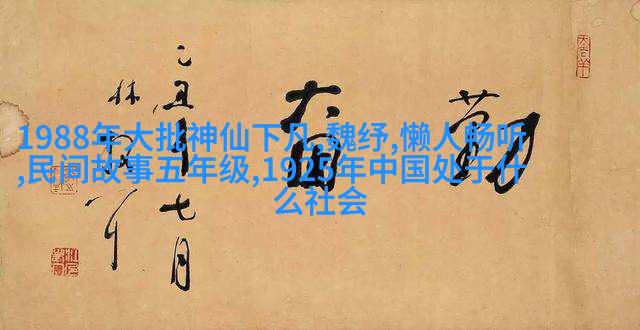 1988年大批神仙下凡,魏纾,懒人畅听
,民间故事五年级,1925年中国处于什
么社会
勤奋
乙丑年七月
林